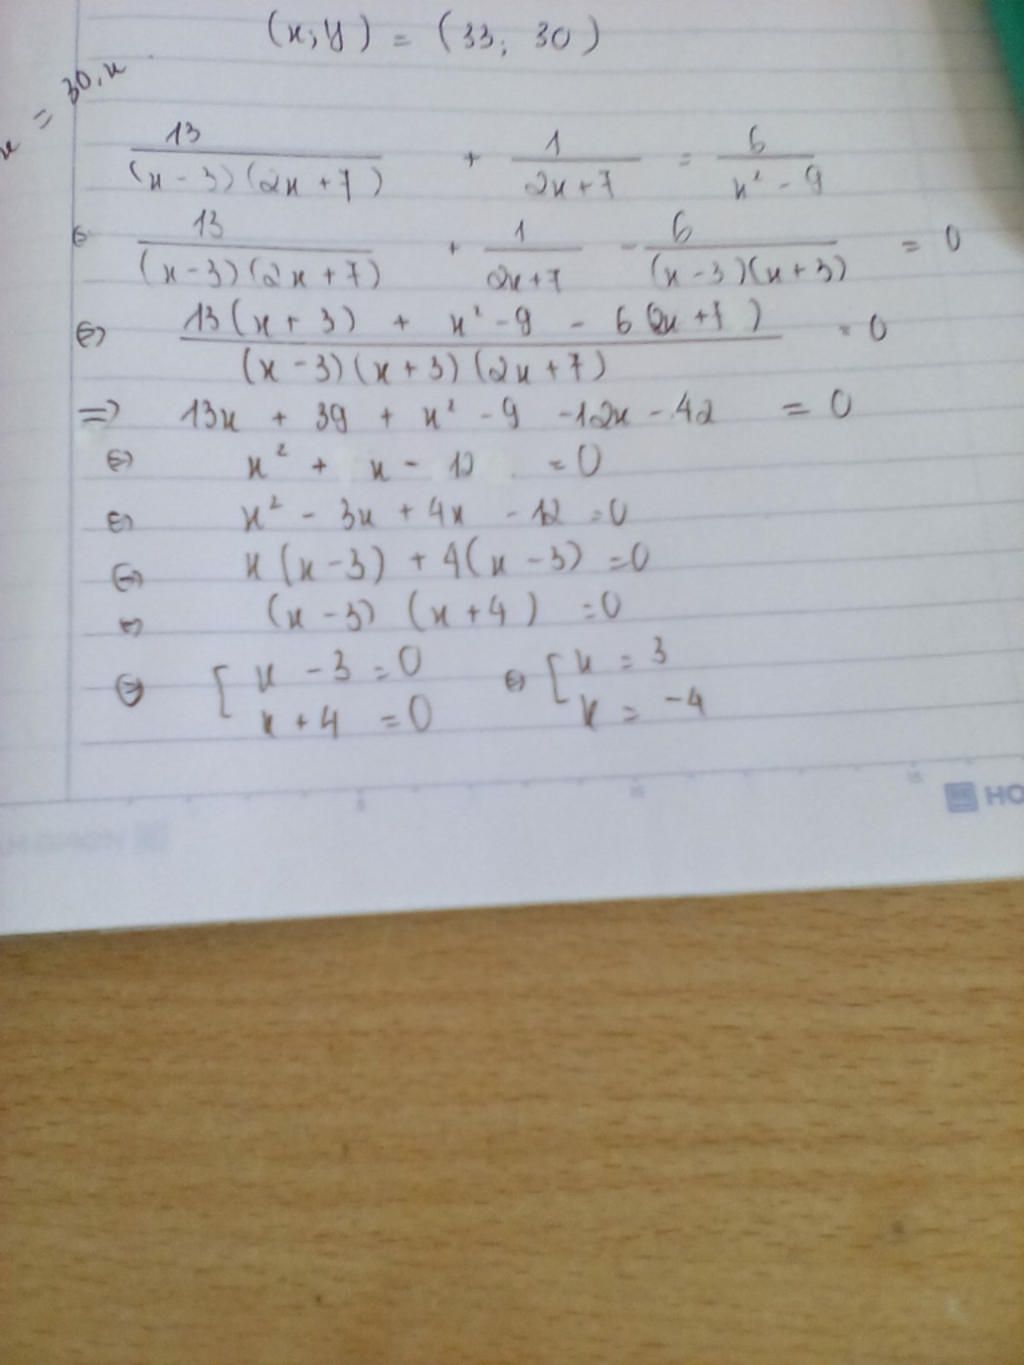 (x; y) = (33; 30)
= 30.x
13/((x - 3)(2x + 7)) + 1/(2x + 7) = 6/(x² - 9)
⇔ 13/((x - 3)(2x + 7)) + 1/(2x + 7) - 6/((x - 3)(x + 3)) = 0
⇔ (13(x + 3) + x² - 9 - 6(2x + 7))/((x - 3)(x + 3)(2x + 7)) = 0
=> 13x + 39 + x² - 9 - 12x - 42 = 0
⇔ x² + x - 12 = 0
⇔ x² - 3x + 4x - 12 = 0
⇔ x(x - 3) + 4(x - 3) = 0
⇔ (x - 3)(x + 4) = 0
⇔ [ x - 3 = 0 ⇔ [ x = 3
x + 4 = 0 x = -4
HO